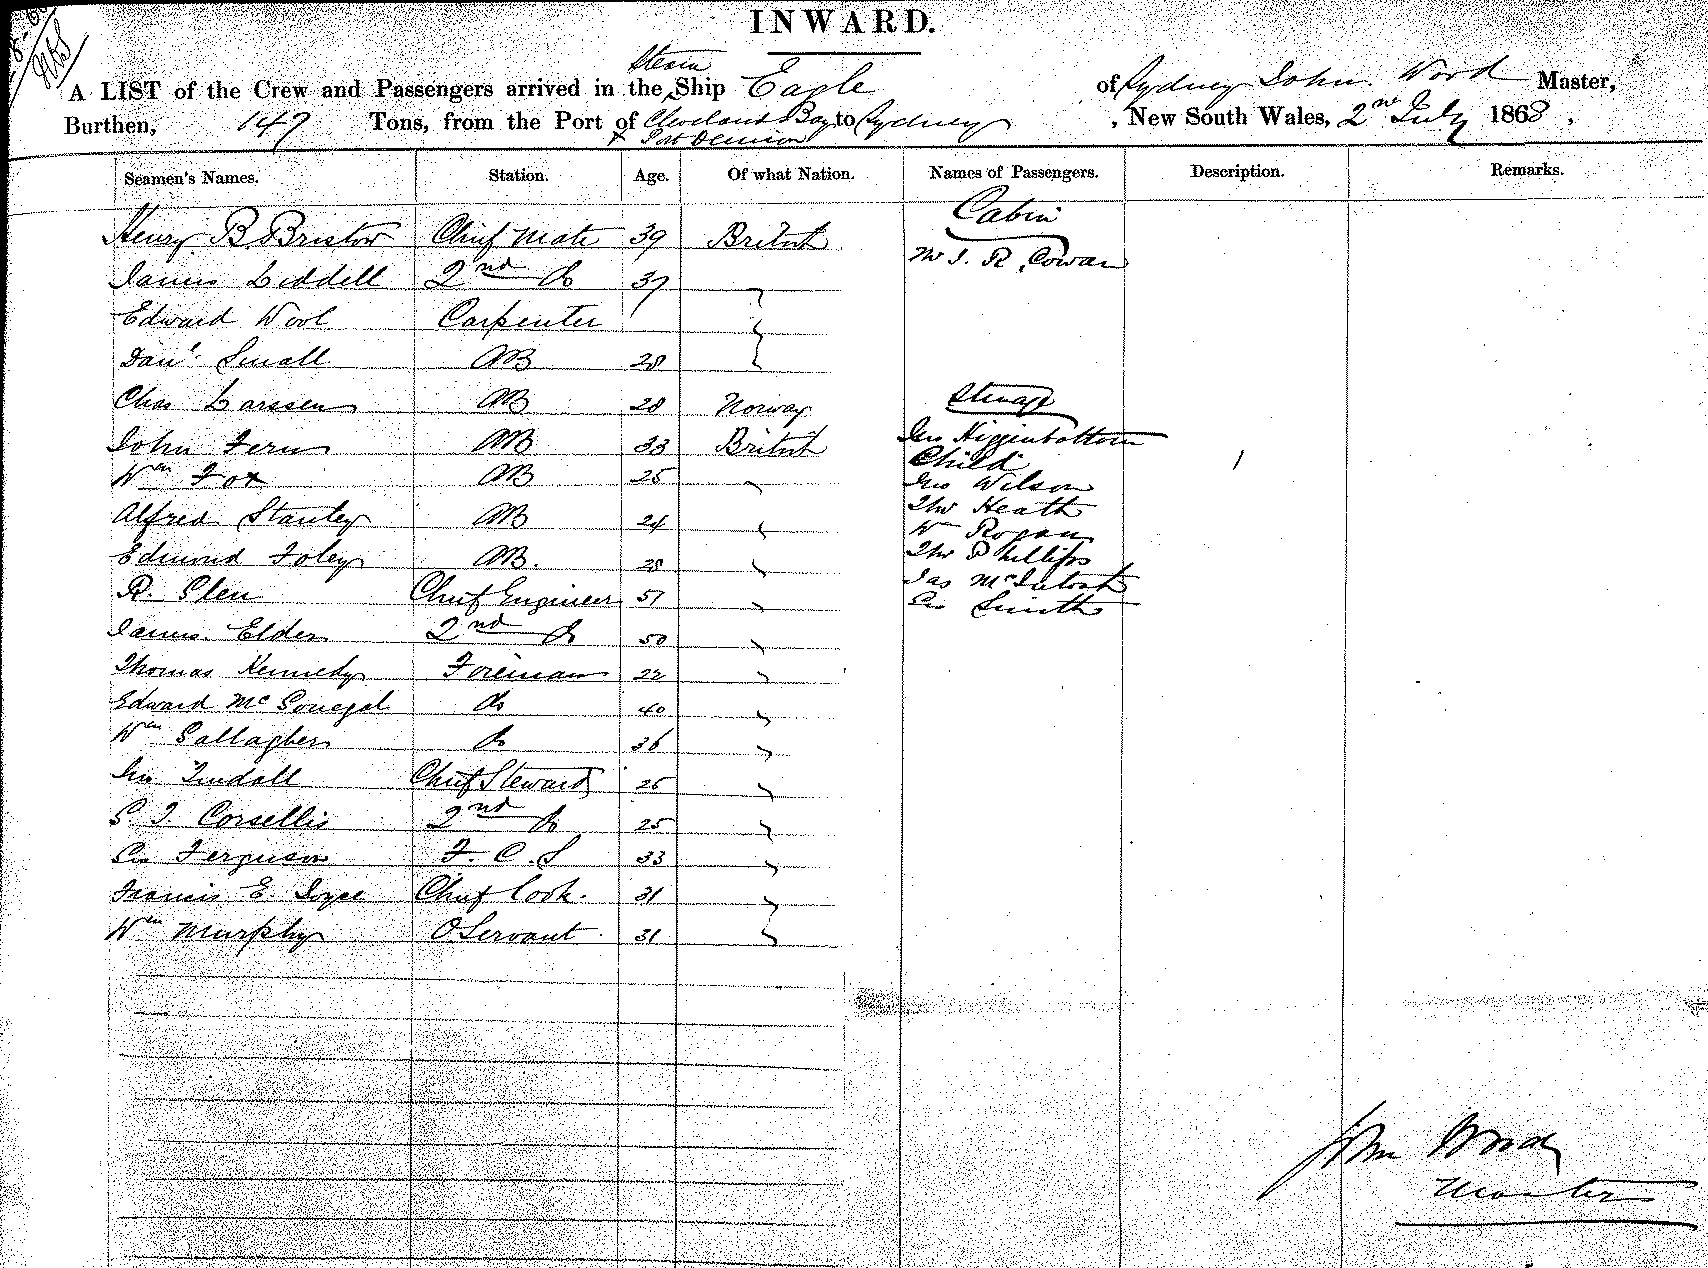 INWARD.
Steam
A LIST of the Crew and Passengers arrived in the Ship Eagle of Sydney John Wood Master,
Burthen, 147 Tons, from the Port of Cleveland Bay to Sydney, New South Wales, 2nd July 1868,
& Port Denison
Seamen's Names. Station. Age. Of what Nation. Names of Passengers. Description. Remarks.
Cabin
Henry B Bristow Chief Mate 39 British
Mr J. R. Cowan
James Liddell 2nd Do 37 "
Edward Wool Carpenter "
Danl Small AB 28 "
Chas Larssen AB 28 Norway Steerage
John Fern AB 33 British Jno Higginbottom
Child 1
Wm Fox AB 25 " Jno Wilson
Thos Heath
Alfred Stanley AB 24 " W Rogan
Edmond Foley AB. 25 " Thos Phillips
Jas McIntosh
R. Glen Chief Engineer 51 " Geo Smith
James Elder 2nd Do 50 "
Thomas Kennedy Foreman 22 "
Edward McGonegal Do 40 "
Wm Gallagher Do 36 "
Jno Tindall Chief Steward 25 "
G. J. Corsellis 2nd Do 25 "
Geo Ferguson F. C. S 33 "
Francis E. Joyce Chief Cook. 31 "
Wm Murphy O Servant 31 "
John Wood
Master